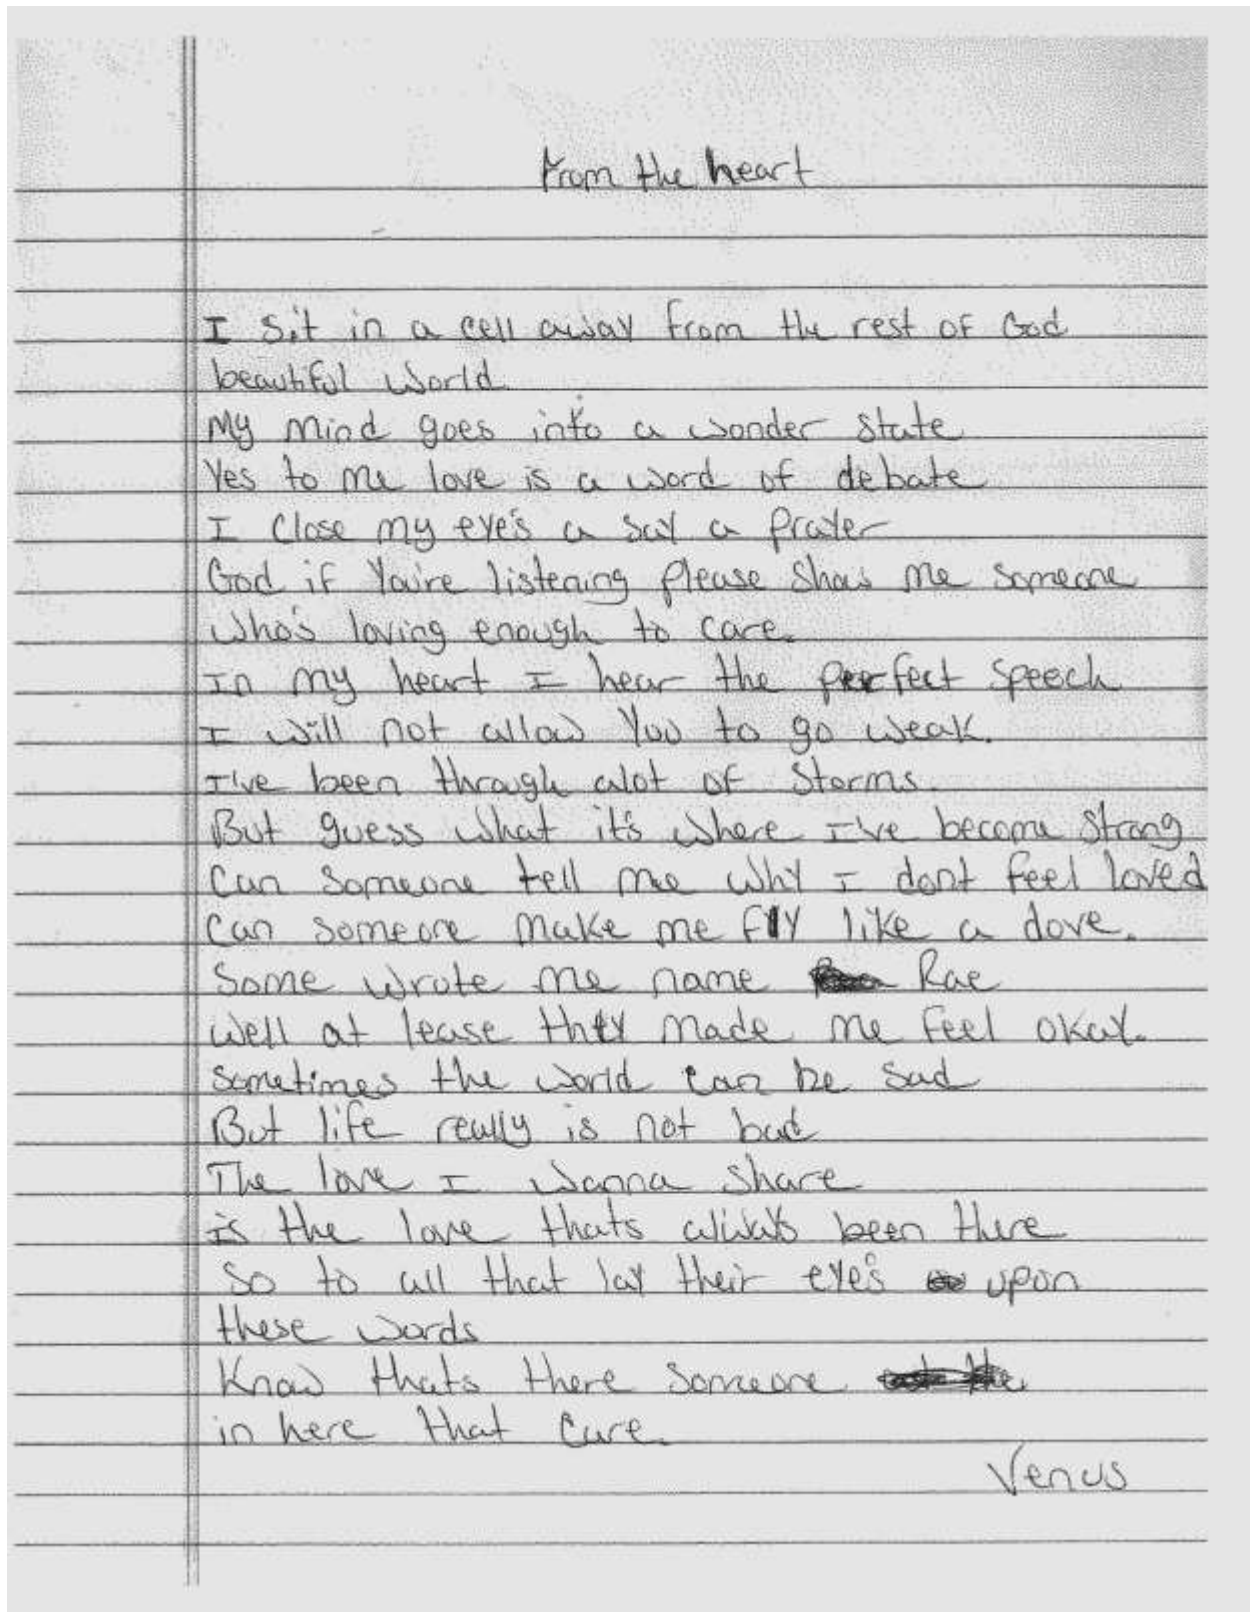 From the heart
I sit in a cell away from the rest of God
beautiful world
My mind goes into a wonder state
Yes to me love is a word of debate
I close my eye's a say a prayer
God if You're listening please show me someone
who's loving enough to care.
In my heart I hear the perfect speech
I will not allow You to go weak.
I've been through alot of storms.
But guess what it's where I've become strong
Can someone tell me why I dont feel loved
Can someone make me fly like a dove.
Some wrote me name Rae
well at lease they made me feel okay.
sometimes the world can be sad
But life really is not bad
The love I wanna share
is the love thats always been there
So to all that lay their eye's upon
these words
Know thats there someone
in here that care.
Venus